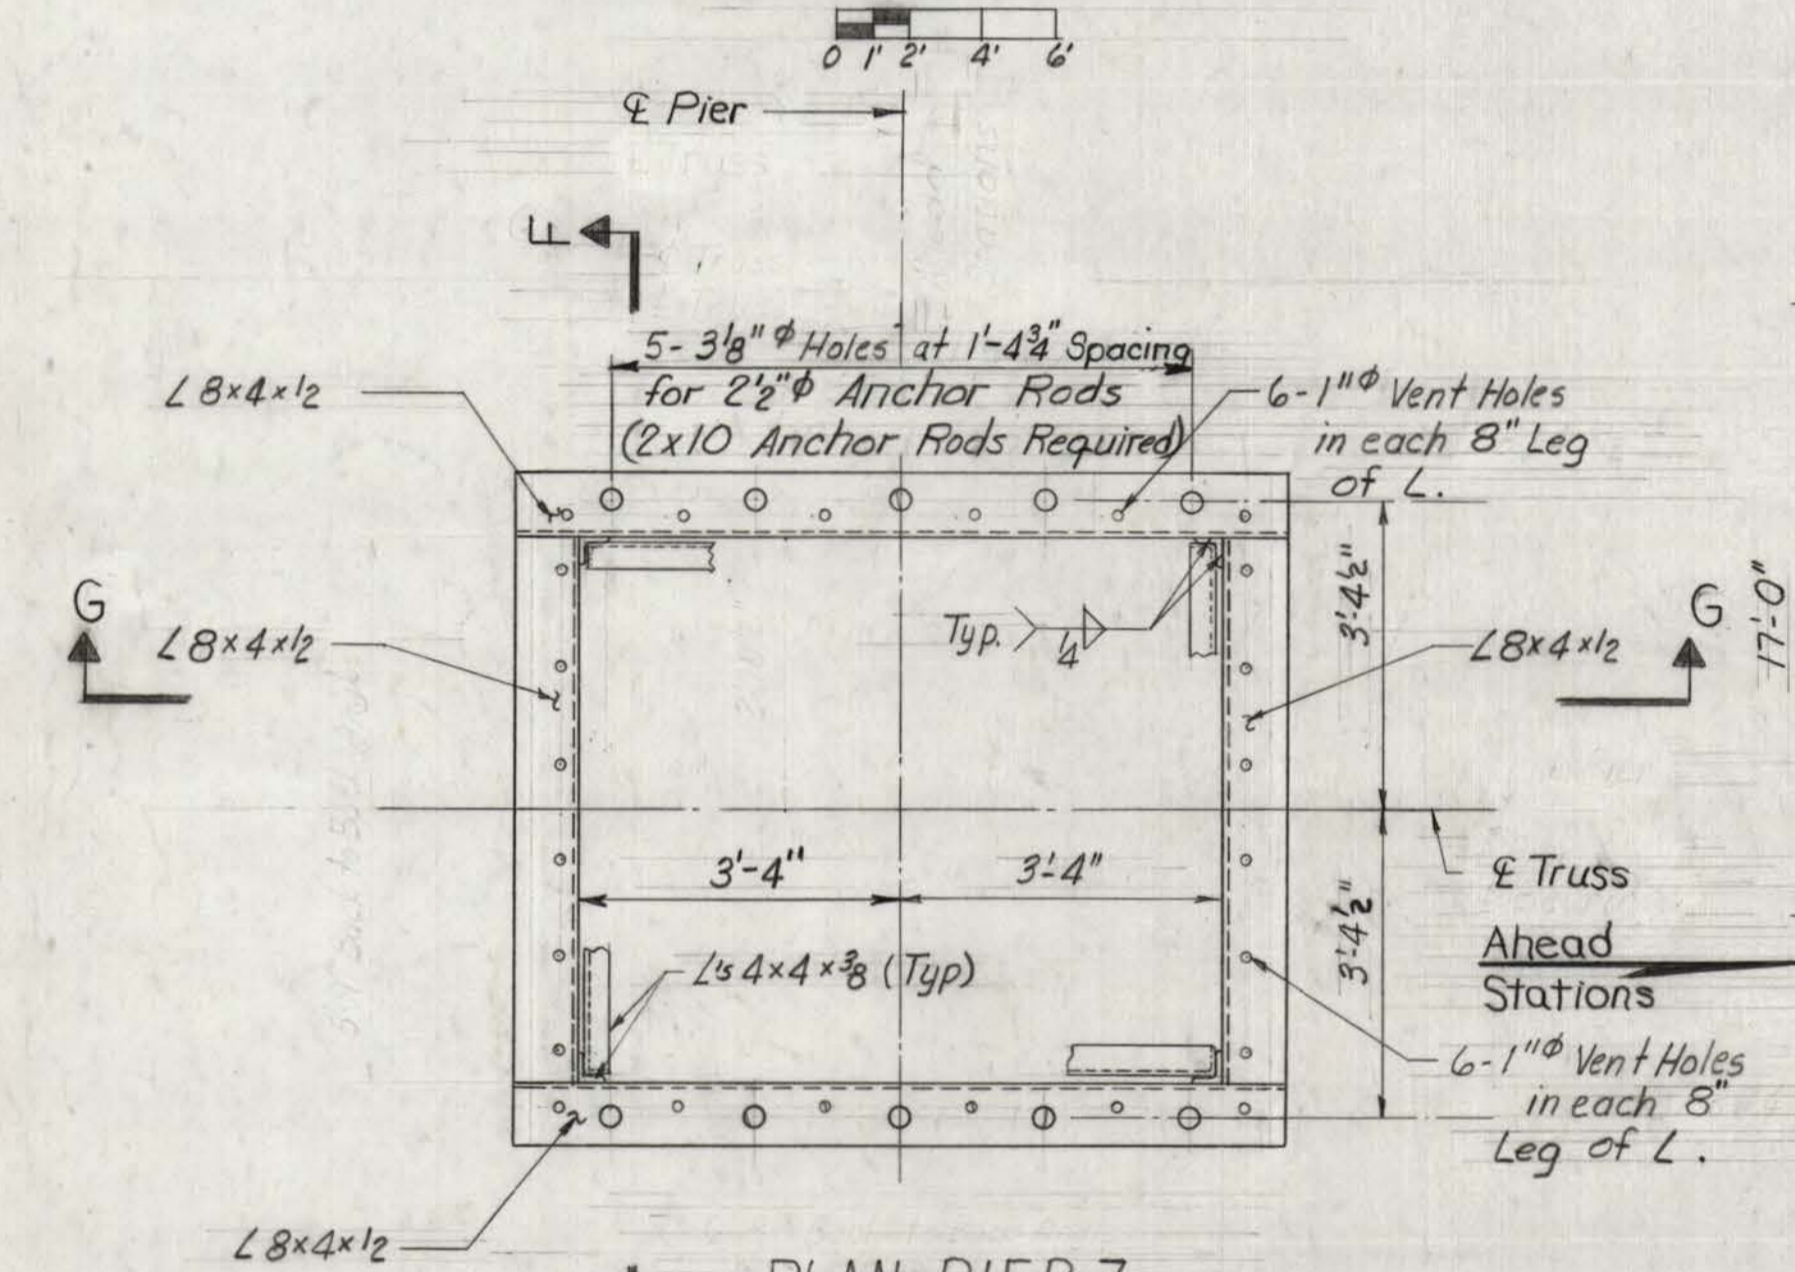 0 1' 2' 4' 6'
℄ Pier
F
5-3⅛"ϕ Holes at 1'-4¾" Spacing
for 2½"ϕ Anchor Rods
(2x10 Anchor Rods Required)
L 8x4x½
6-1"ϕ Vent Holes
in each 8" Leg
of L.
3'-4½"
17'-0"
G
G
L 8x4x½
Typ.
¼
L 8x4x½
3'-4"
3'-4"
℄ Truss
3'-4½"
Ahead
Stations
L's 4x4x⅜ (Typ)
6-1"ϕ Vent Holes
in each 8"
Leg of L.
L 8x4x½
PLAN PIER 7